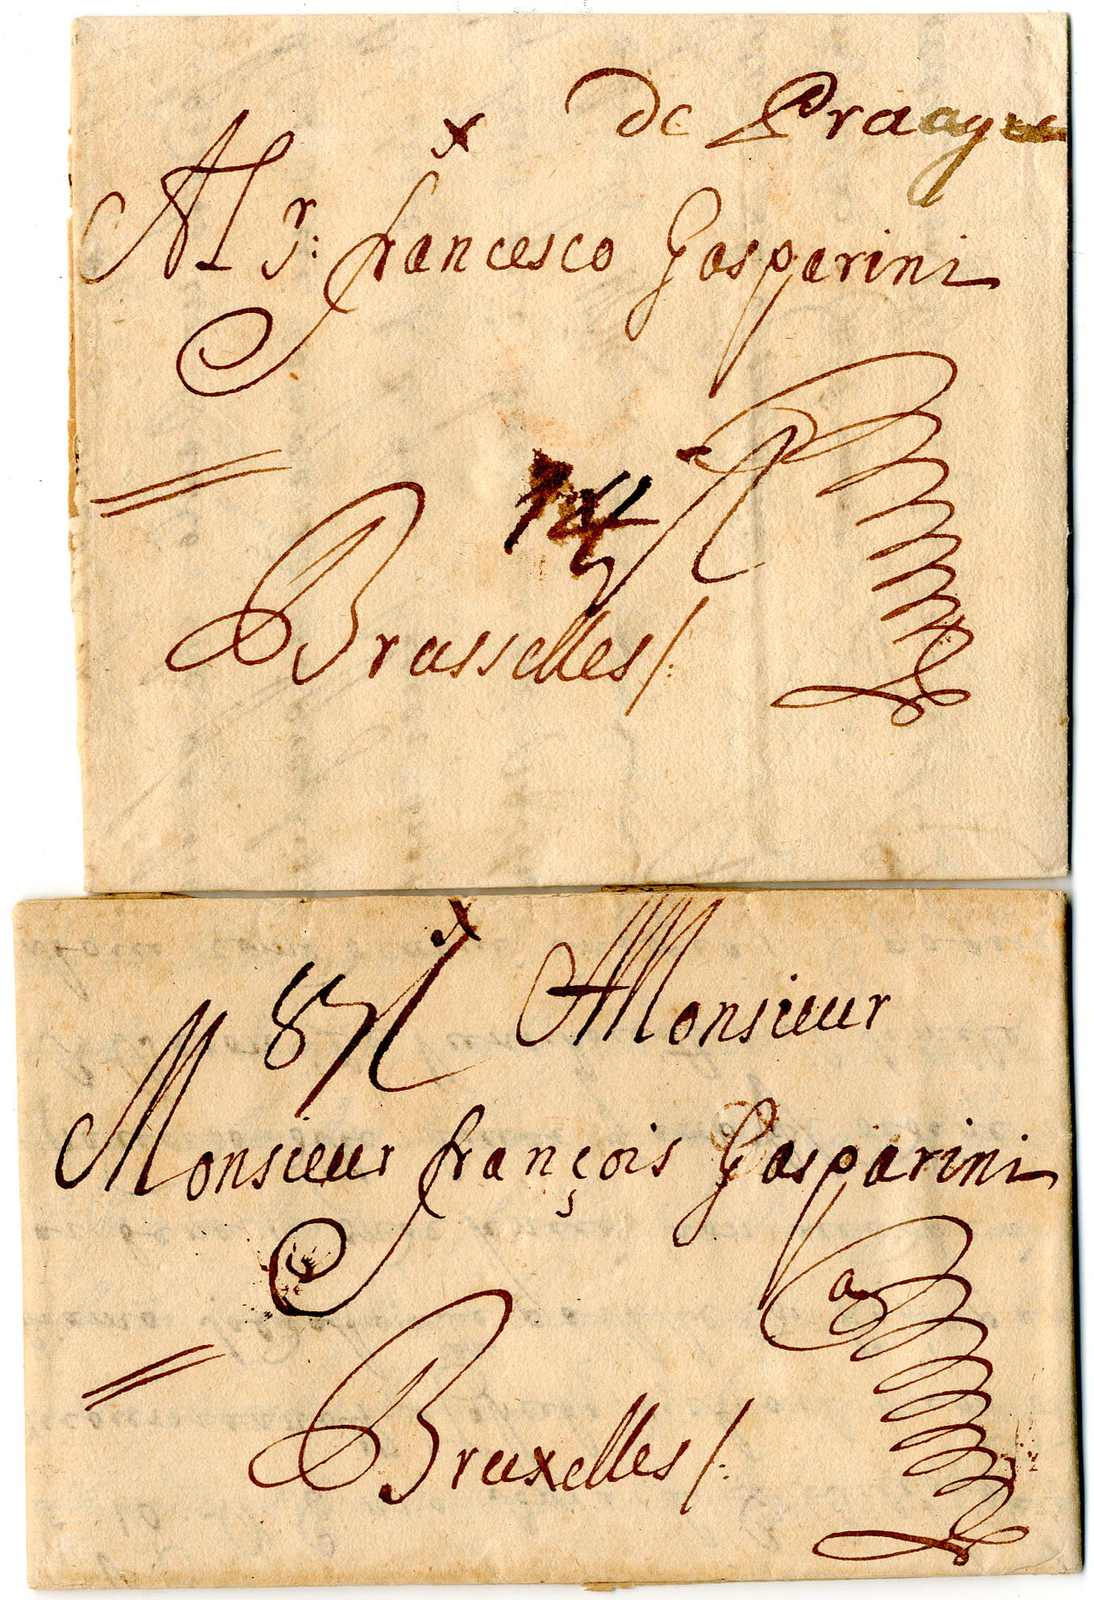 de Praague
x
Al Sr: francesco Gasparini
14
Brusselles/:
x
8 Monsieur
Monsieur françois Gasparini
a
Bruxelles/: